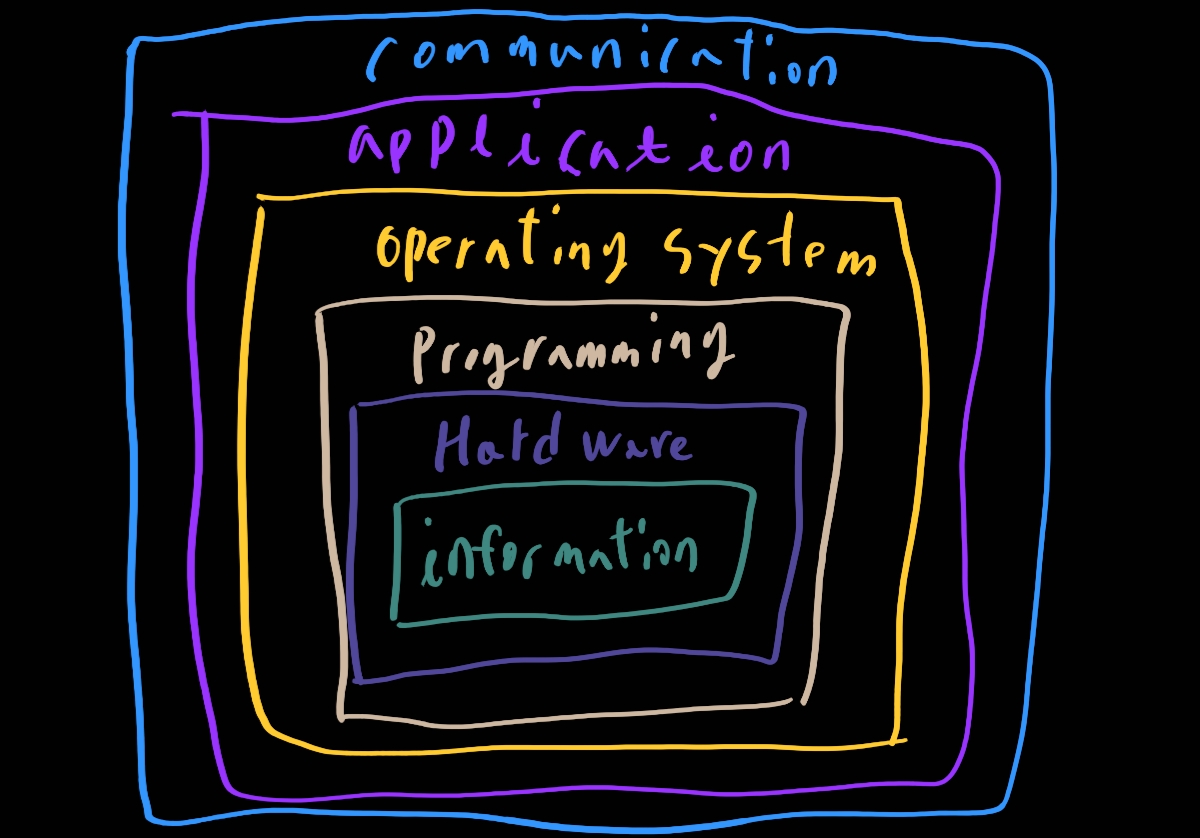 communication
application
operating system
Programming
Hardware
information